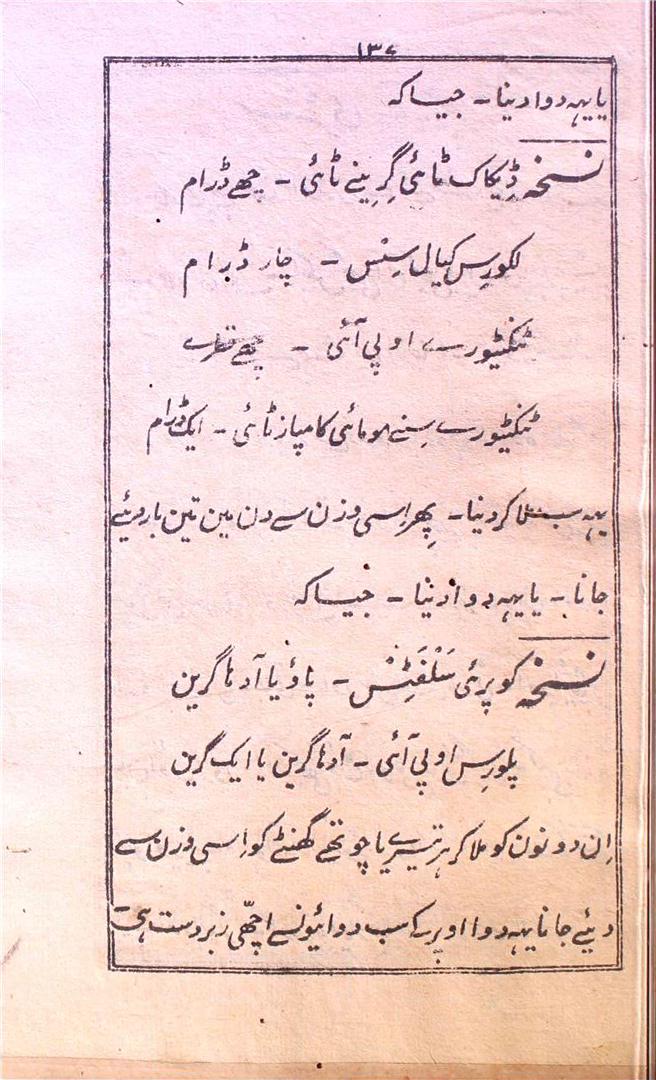 ۱۳۷
یا یہہ دوا دینا ۔ جیسا کہ
نسخہ ڈِیکاک ٹائی گِرِینے ٹائی ۔ چھے ڈرام
لکورِس کیال سِنس ۔ چار ڈرام
ٹنکیٹورے اوپی آئی ۔ چھے قطرے
ٹنکیٹورے سِنے مومائی کامپازٹائی ۔ ایک ڈرام
یہہ سب ملا کر دینا ۔ پِھر اِسی وزن سے دن مین تین بار دیئے
جانا ۔ یا یہہ دوا دینا ۔ جیسا کہ
نسخہ کوپرئی سَلْفَٹِسْ ۔ پاؤ یا آدہا گرین
پلورِس اوپی آئی ۔ آدہا گرین یا ایک گرین
اِن دونون کو ملا کر ہر تیسرے یا چوتھے گھنٹے کو اِسی وزن سے
دیئے جانا یہہ دوا اوپر کے سب دوائیونسے اچّھی زبردست ہی